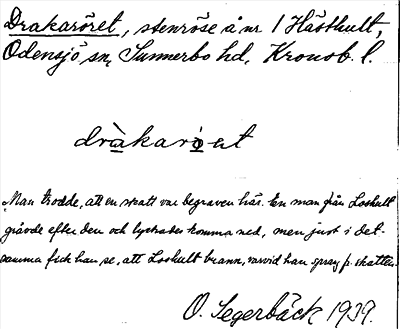 Drakaröret, stenröse å nr 1 Hästhult,
Odensjö sn, Sunnerbo hd, Kronob. l.
dràkarö̀et
Man trodde, att en skatt var begraven här. En man från Loshult
grävde efter den och lyckades komma ned, men just i det-
samma fick han se, att Loshult brann, varvid han sprang fr. skatten.
O. Segerbäck 1939.